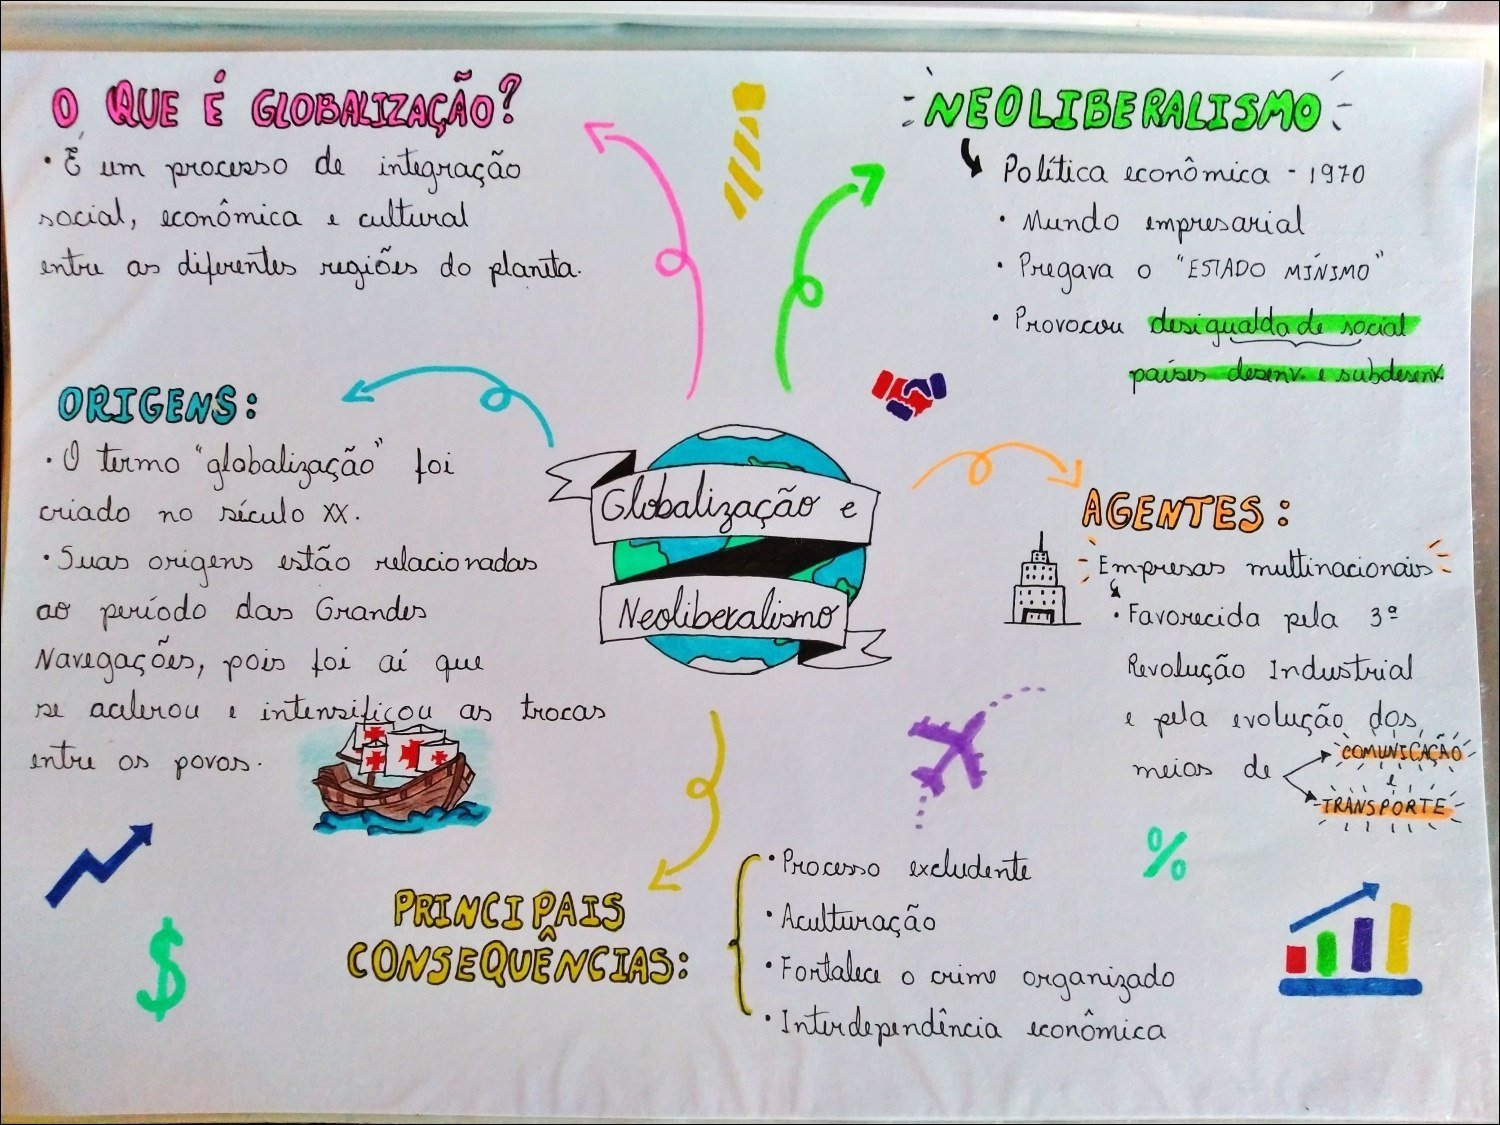 O QUE É GLOBALIZAÇÃO?
• É um processo de integração
social, econômica e cultural
entre as diferentes regiões do planeta.
NEOLIBERALISMO
Política econômica - 1970
• Mundo empresarial
• Pregava o "ESTADO MÍNIMO"
• Provocou desigualdade social
países desenv. e subdesenv.
ORIGENS:
• O termo "globalização" foi
criado no século XX.
• Suas origens estão relacionadas
ao período das Grandes
Navegações, pois foi aí que
se acelerou e intensificou as trocas
entre os povos.
Globalização e
Neoliberalismo
AGENTES:
Empresas multinacionais
• Favorecida pela 3ª
Revolução Industrial
e pela evolução dos
meios de
COMUNICAÇÃO
e
TRANSPORTE
PRINCIPAIS
CONSEQUÊNCIAS:
• Processo excludente
• Aculturação
• Fortalece o crime organizado
• Interdependência econômica
%
$